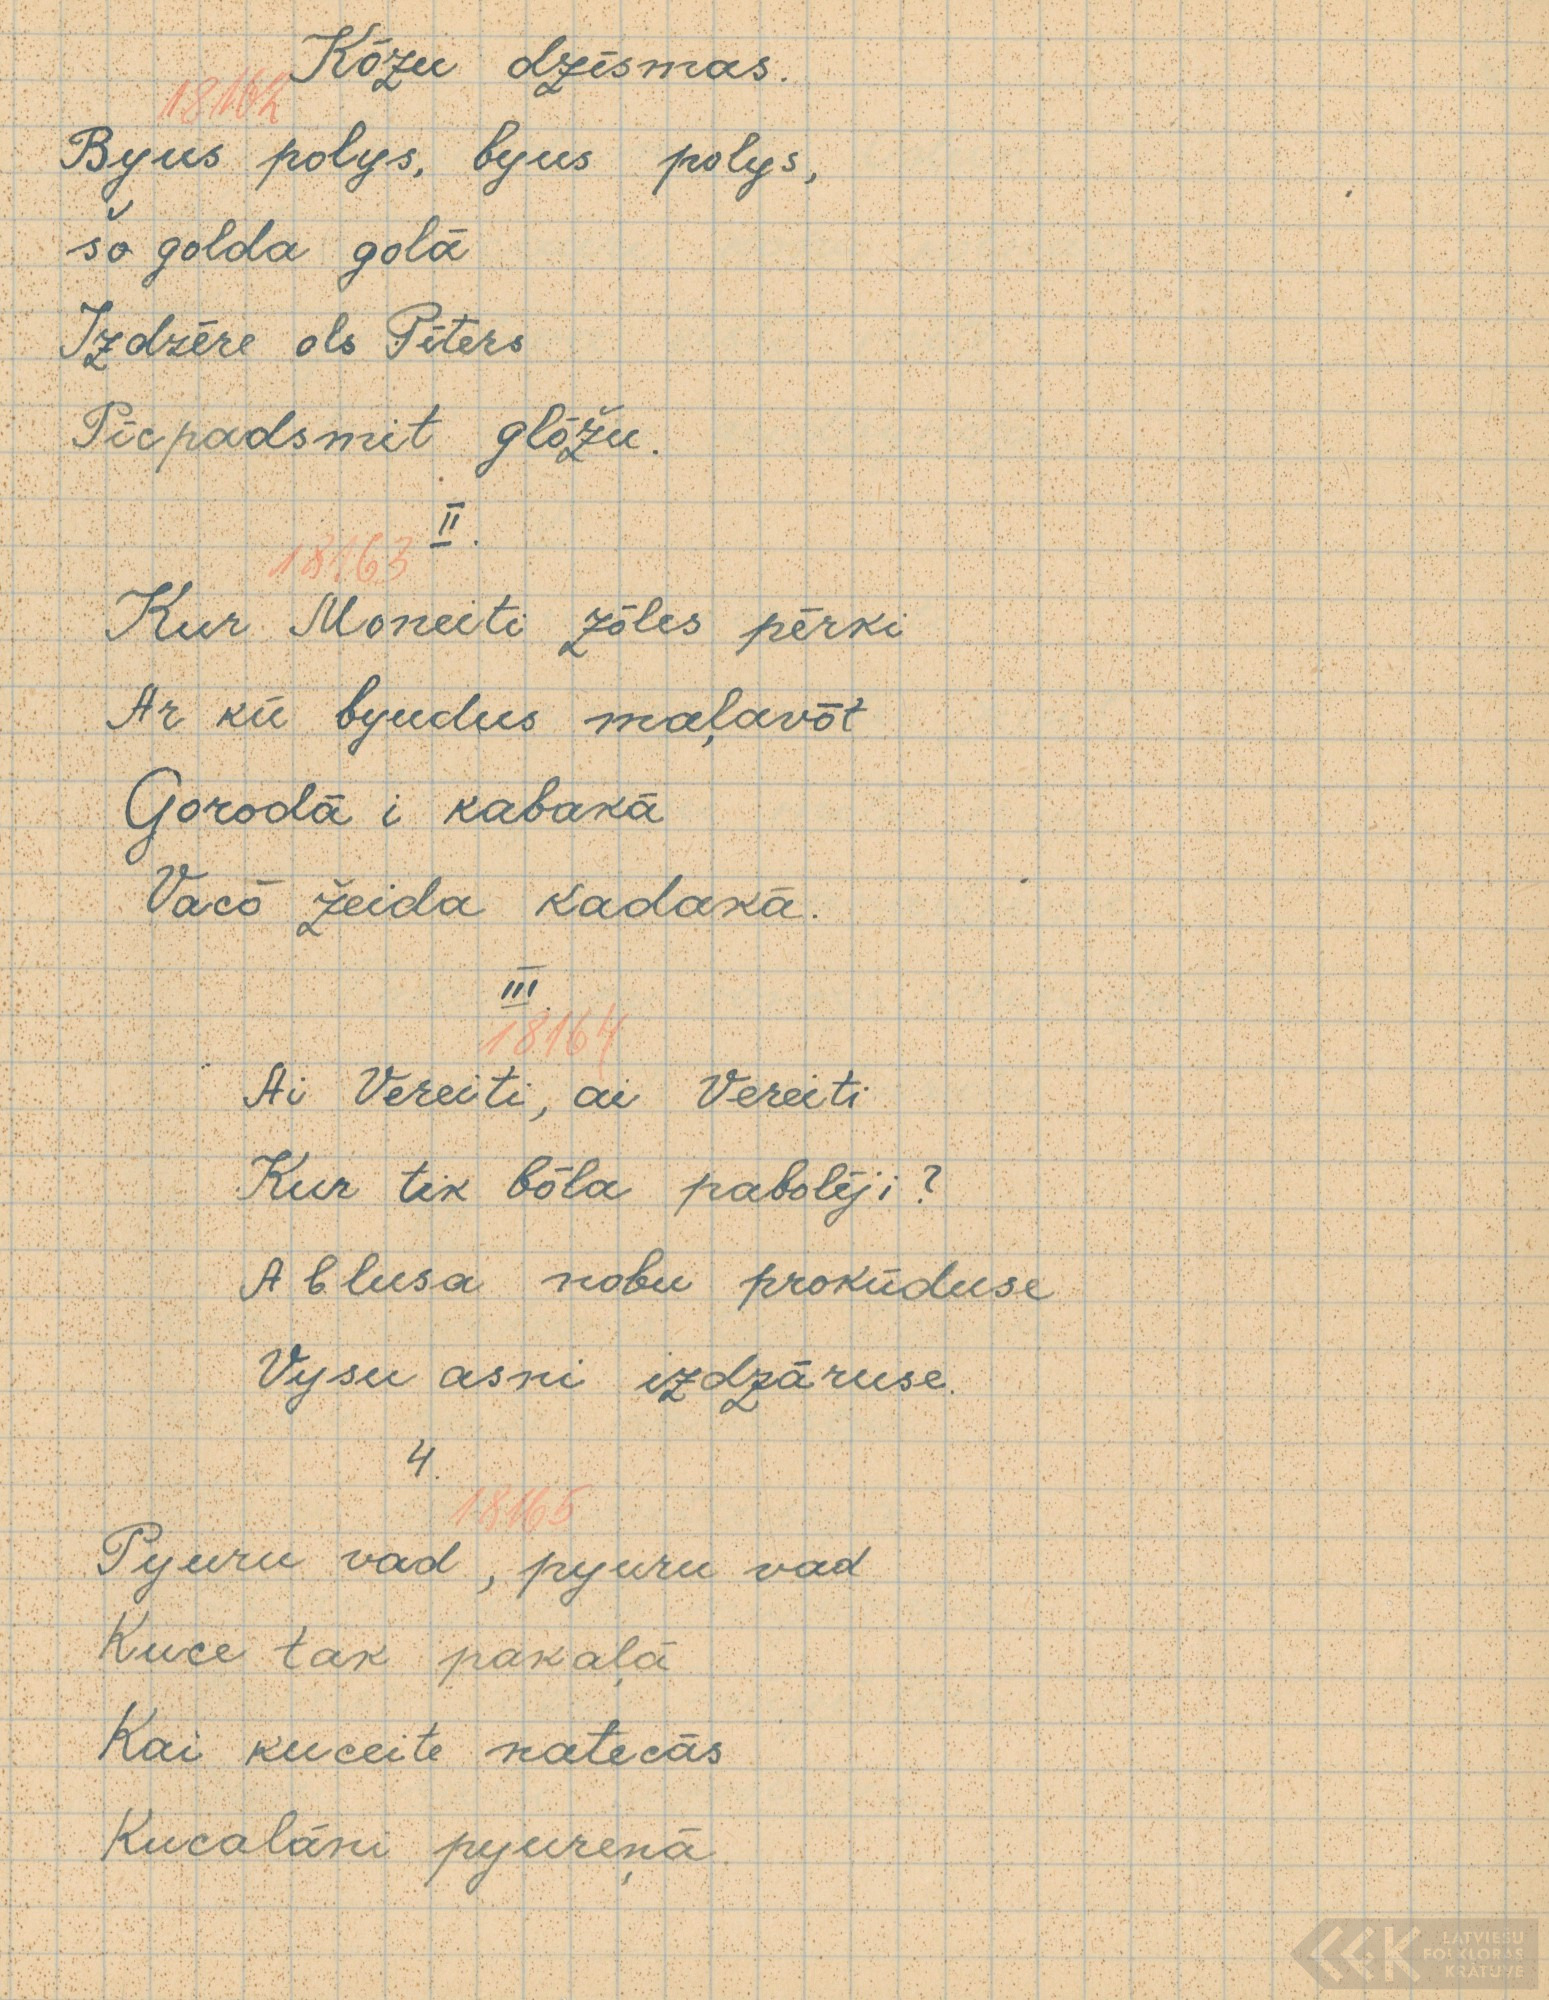 Kōzu dzīsmas.
18162
Byus polys, byus polys,
šo golda golā
Izdzēre ols Pīters
Pīcpadsmit glōžu.
II.
18163
Kur Moneiti zōles pērki
Ar kū byudus maļavōt
Gorodā i kabakā
Vacō žeida kadakā.
III.
18164
Ai Vereiti, ai Vereiti
Kur tik bōla pabolēji?
A blusa nobu prokūduse
Vysu asni izdzāruse.
4.
18165
Pyuru vad, pyuru vad
Kuce tak pakaļā
Kai kuceite natecās
Kucalāni pyureņā
LATVIEŠU
FOLKLORAS
KRĀTUVE